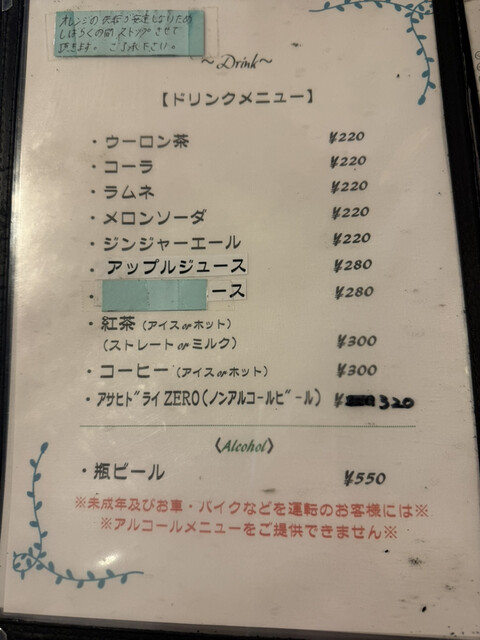 オレンジの供給が安定しないため
しばらくの間 ストップさせて
頂きます。ご了承下さい。
～Drink～
【ドリンクメニュー】
・ウーロン茶 ¥220
・コーラ ¥220
・ラムネ ¥220
・メロンソーダ ¥220
・ジンジャーエール ¥220
・アップルジュース ¥280
・ース ¥280
・紅茶（アイスorホット）
（ストレートorミルク） ¥300
・コーヒー（アイスorホット） ¥300
・アサヒドライZERO(ノンアルコールビール) ¥320
《Alcohol》
・瓶ビール ¥550
※未成年及びお車・バイクなどを運転のお客様には※
※アルコールメニューをご提供できません※